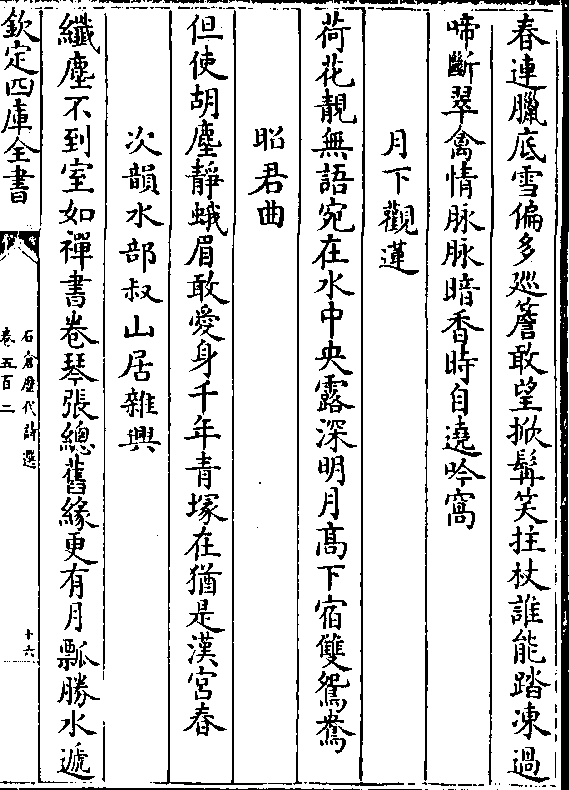 春連臘底雪偏多廵簷敢望掀髯笑拄杖誰能踏凍過
啼斷翠禽情脉脉暗香時自遶吟窩
月下觀蓮
荷花靚無語宛在水中央露深明月髙下宿雙鴛鴦
昭君曲
但使胡塵靜蛾眉敢愛身千年青塚在猶是漢宫春
次韻水部叔山居雜興
纎塵不到室如禪書卷琴張總舊緣更有月瓢勝水遞
欽定四庫全書
石倉歷代詩選
卷五百二
十六